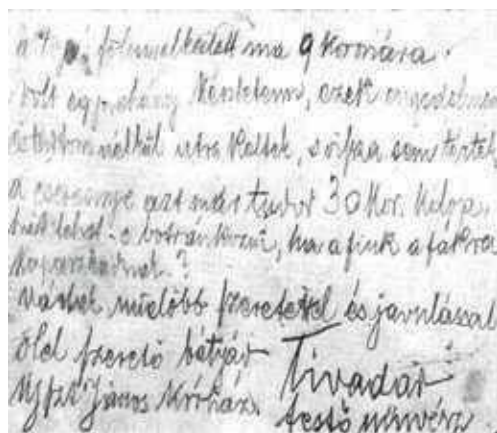 fölemelkedett ma 9 koronára.
volt egy néhány kéntelem, ezek engedelmem
nélkül utra keltek, s vissza sem tértek
a cseresznye azt már tudod 30 Kor. kilója.
hát lehet-e botránkozni, ha a fiuk a fákra
kapaszkodnak?
Váslak mielőbb szeretettel és javulással
ölel szerető bátyád Tivadar
Ujszt János Kórház. festőművész